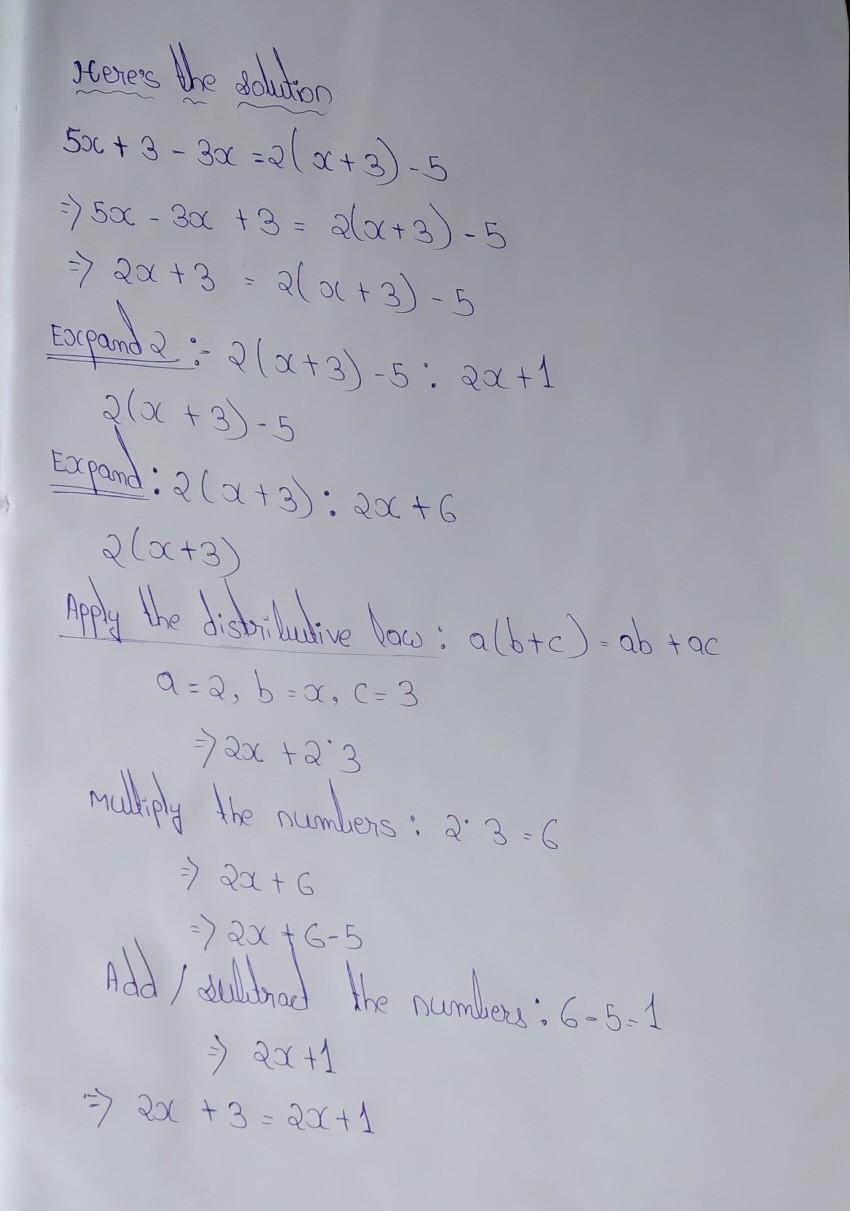 Here's the solution
5x + 3 - 3x = 2(x+3) - 5
⇒ 5x - 3x + 3 = 2(x+3) - 5
⇒ 2x + 3 = 2(x+3) - 5
Expand 2 :- 2(x+3) - 5 : 2x+1
2(x + 3) - 5
Expand : 2(x+3) : 2x + 6
2(x+3)
Apply the distributive law : a(b+c) = ab + ac
a = 2, b = x, c = 3
⇒ 2x + 2·3
Multiply the numbers : 2·3 = 6
⇒ 2x + 6
⇒ 2x + 6 - 5
Add / subtract the numbers : 6 - 5 = 1
⇒ 2x + 1
⇒ 2x + 3 = 2x + 1